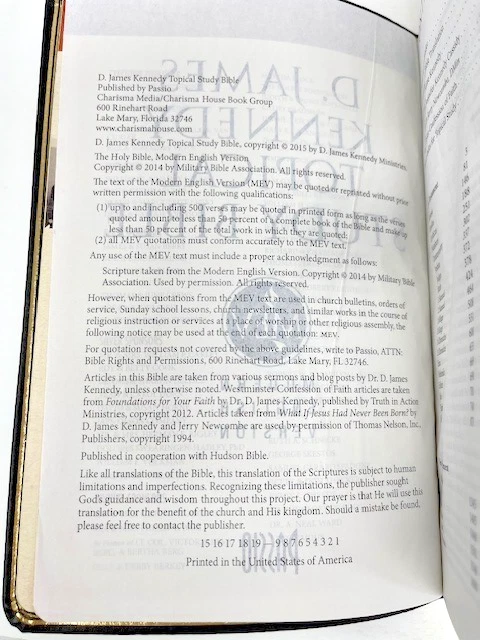 D. James Kennedy Topical Study Bible
Published by Passio
Charisma Media/Charisma House Book Group
600 Rinehart Road
Lake Mary, Florida 32746
www.charismahouse.com
D. James Kennedy Topical Study Bible, copyright © 2015 by D. James Kennedy Ministries.
The Holy Bible, Modern English Version
Copyright © 2014 by Military Bible Association. All rights reserved.
The text of the Modern English Version (MEV) may be quoted or reprinted without prior
written permission with the following qualifications:
(1) up to and including 500 verses may be quoted in printed form as long as the verses
quoted amount to less than 50 percent of a complete book of the Bible and make up
less than 50 percent of the total work in which they are quoted;
(2) all MEV quotations must conform accurately to the MEV text.
Any use of the MEV text must include a proper acknowledgment as follows:
Scripture taken from the Modern English Version. Copyright © 2014 by Military Bible
Association. Used by permission. All rights reserved.
However, when quotations from the MEV text are used in church bulletins, orders of
service, Sunday school lessons, church newsletters, and similar works in the course of
religious instruction or services at a place of worship or other religious assembly, the
following notice may be used at the end of each quotation: MEV.
For quotation requests not covered by the above guidelines, write to Passio, ATTN:
Bible Rights and Permissions, 600 Rinehart Road, Lake Mary, FL 32746.
Articles in this Bible are taken from various sermons and blog posts by Dr. D. James
Kennedy, unless otherwise noted. Westminster Confession of Faith articles are taken
from Foundations for Your Faith by Dr. D. James Kennedy, published by Truth in Action
Ministries, copyright 2012. Articles taken from What If Jesus Had Never Been Born? by
D. James Kennedy and Jerry Newcombe are used by permission of Thomas Nelson, Inc.,
Publishers, copyright 1994.
Published in cooperation with Hudson Bible.
Like all translations of the Bible, this translation of the Scriptures is subject to human
limitations and imperfections. Recognizing these limitations, the publisher sought
God's guidance and wisdom throughout this project. Our prayer is that He will use this
translation for the benefit of the church and His kingdom. Should a mistake be found,
please feel free to contact the publisher.
15 16 17 18 19 – 9 8 7 6 5 4 3 2 1
Printed in the United States of America